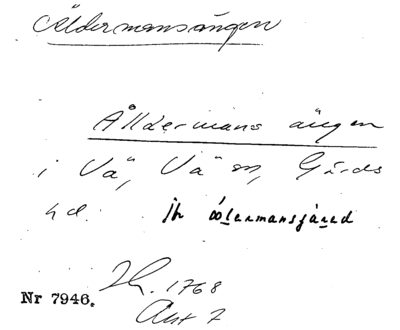 Åldermansängen
Ålldermans ängen
i Vä, Vä sn, Gärds
hd. jfr
1768
Nr 7946.
Akt 7